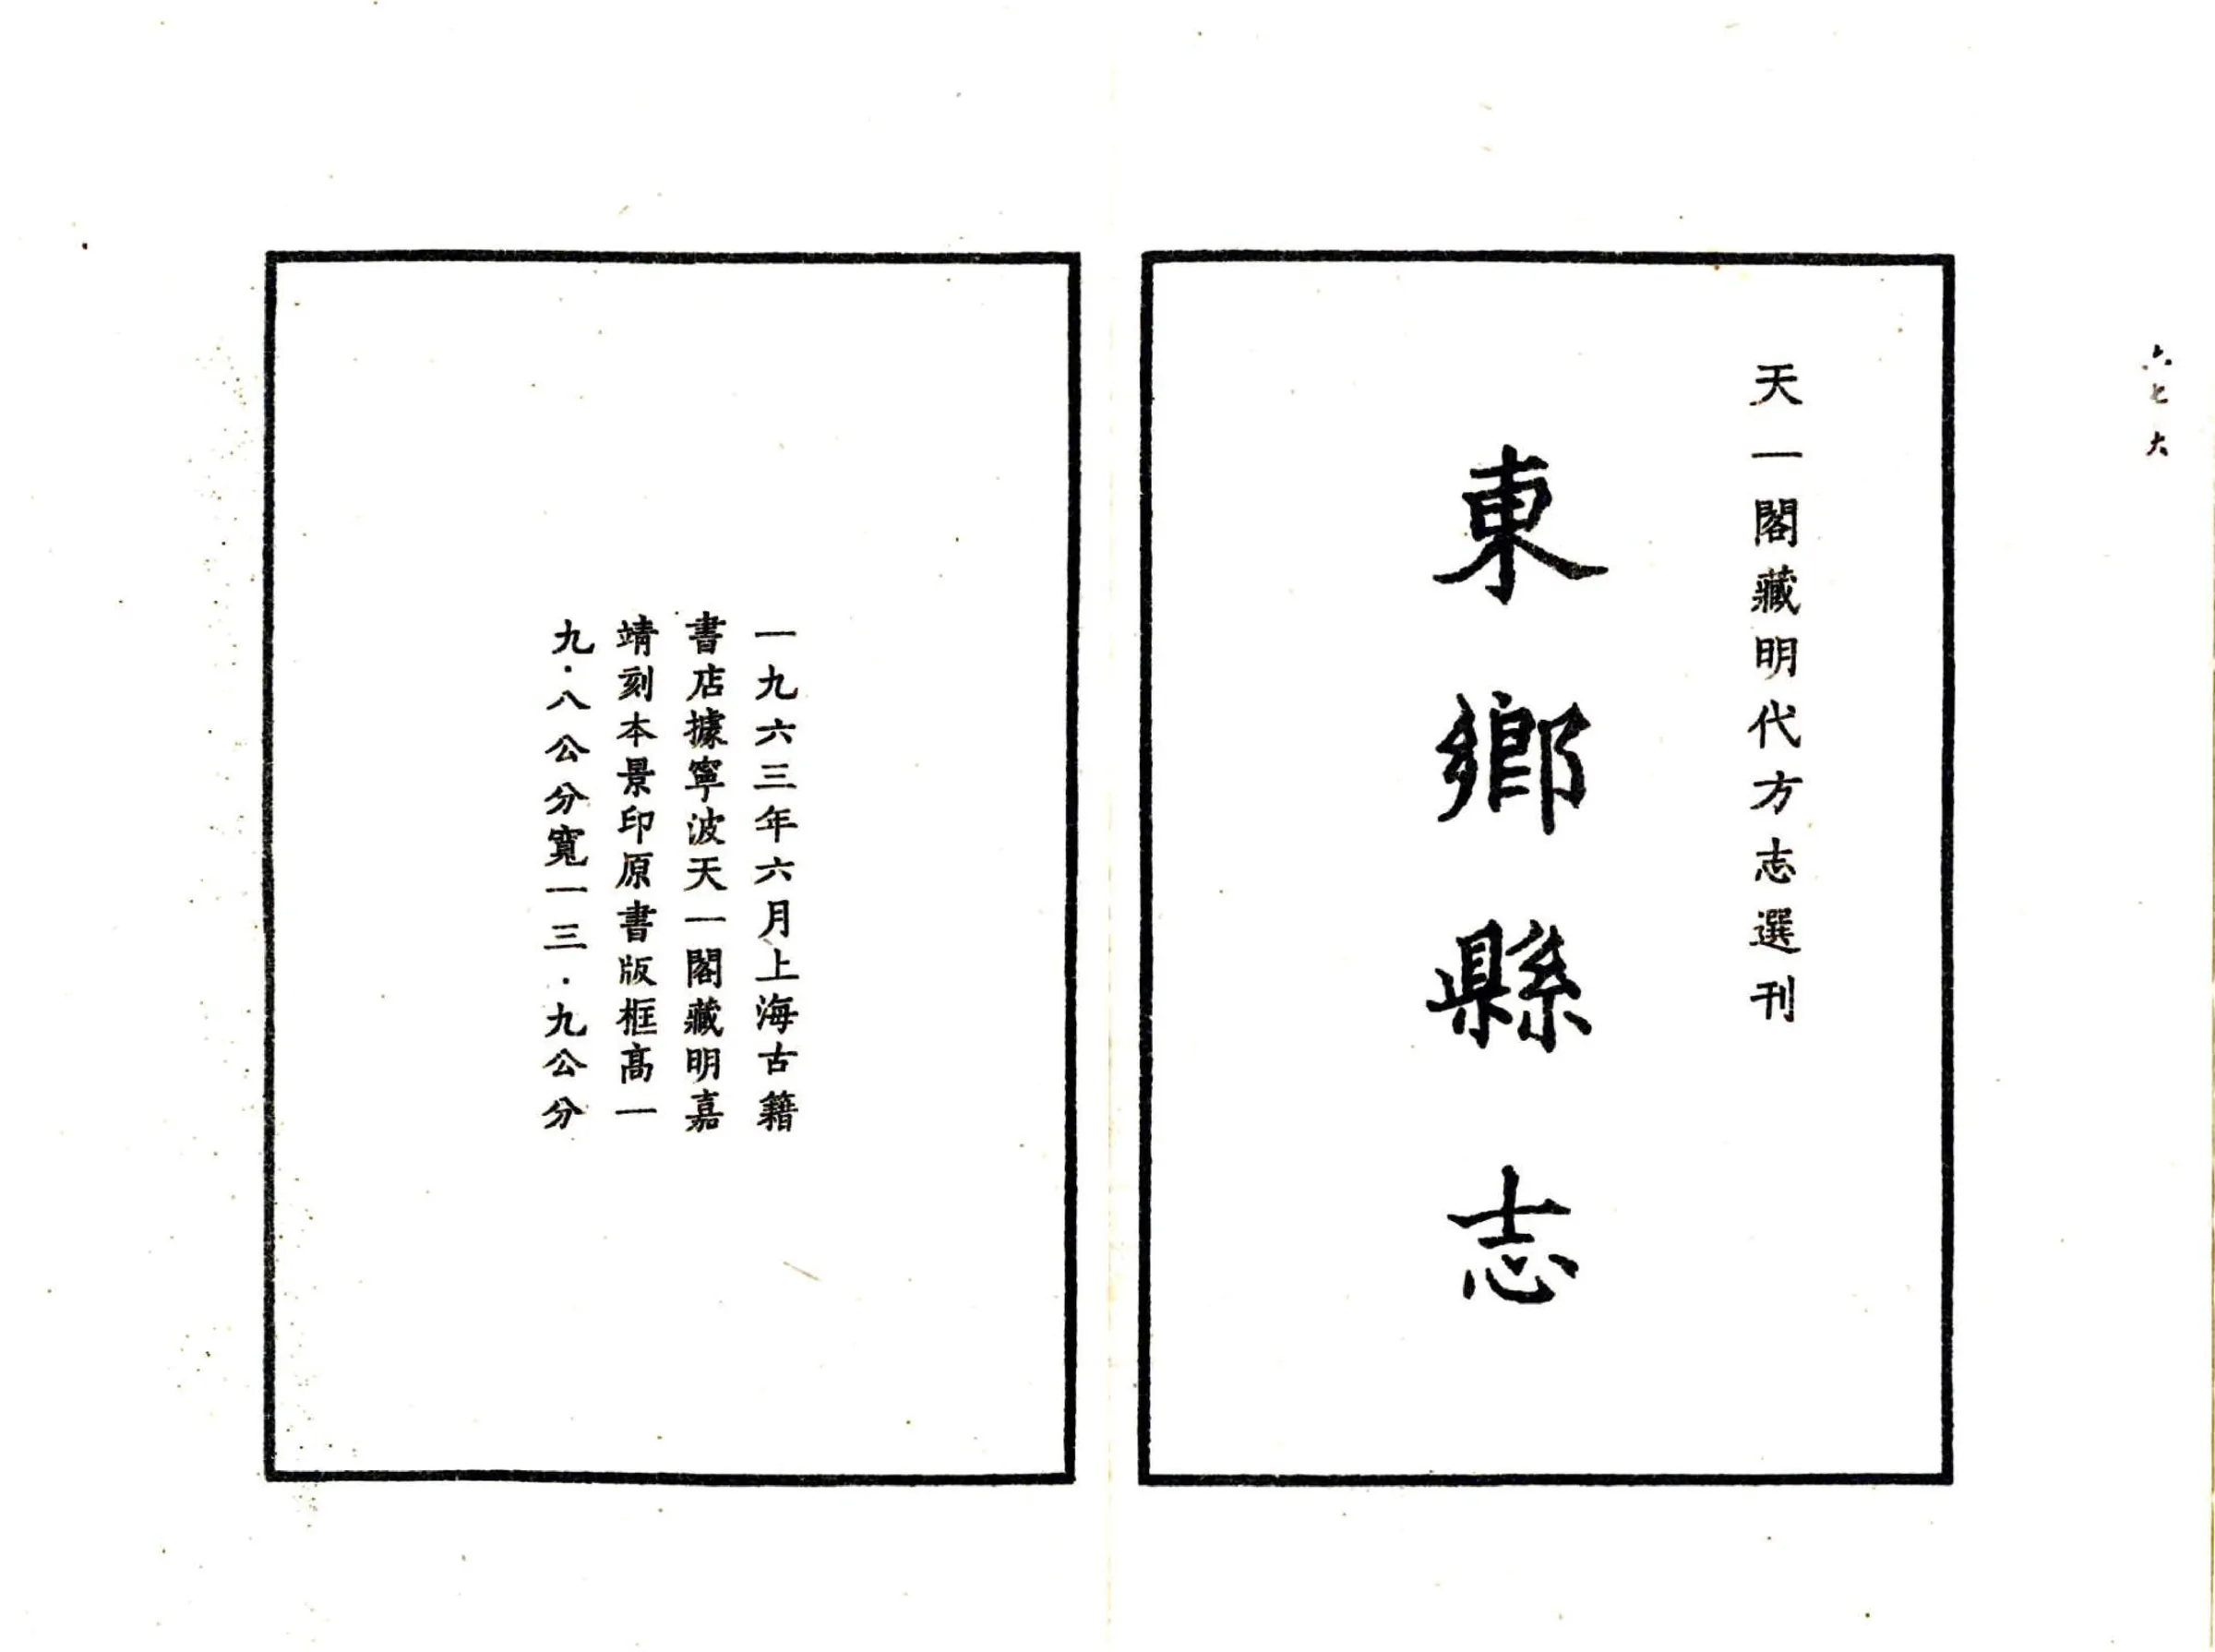 天一閣藏明代方志選刊
東鄉縣志
一九六三年六月上海古籍
書店據寧波天一閣藏明嘉
靖刻本景印原書版框高一
九·八公分寬一三·九公分